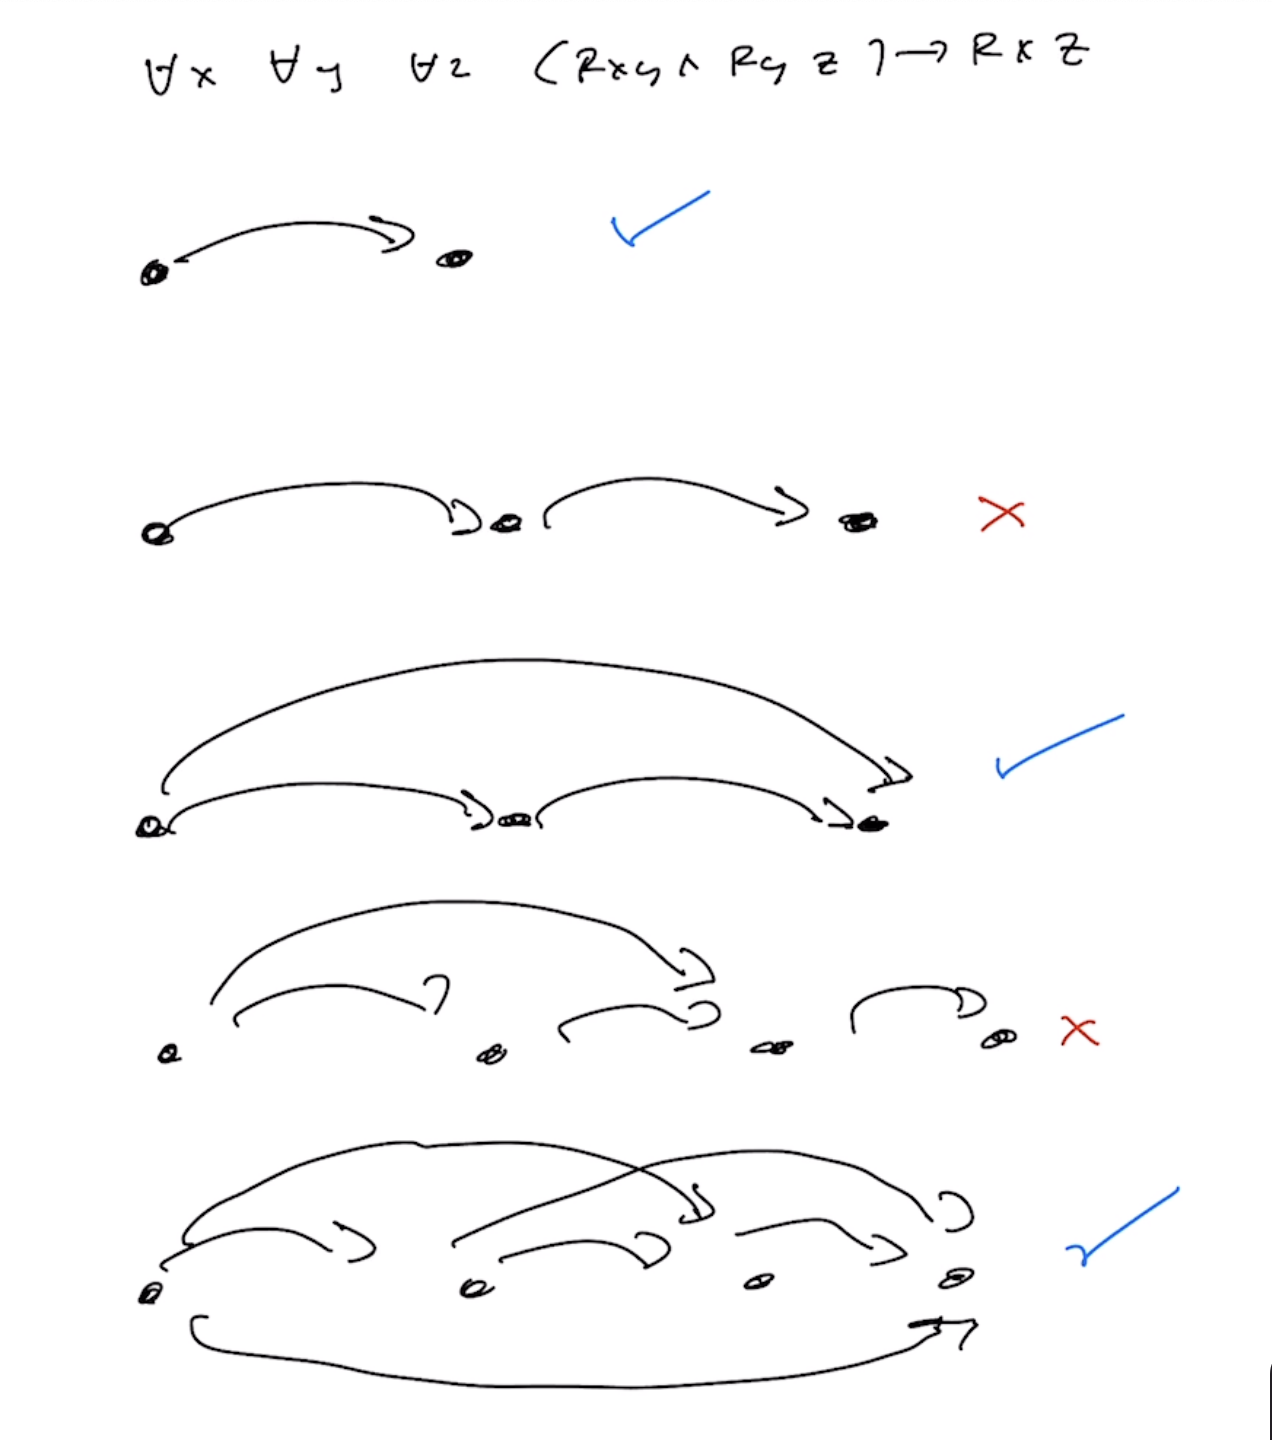 ∀x ∀y ∀z (Rxy ∧ Ryz) → Rxz